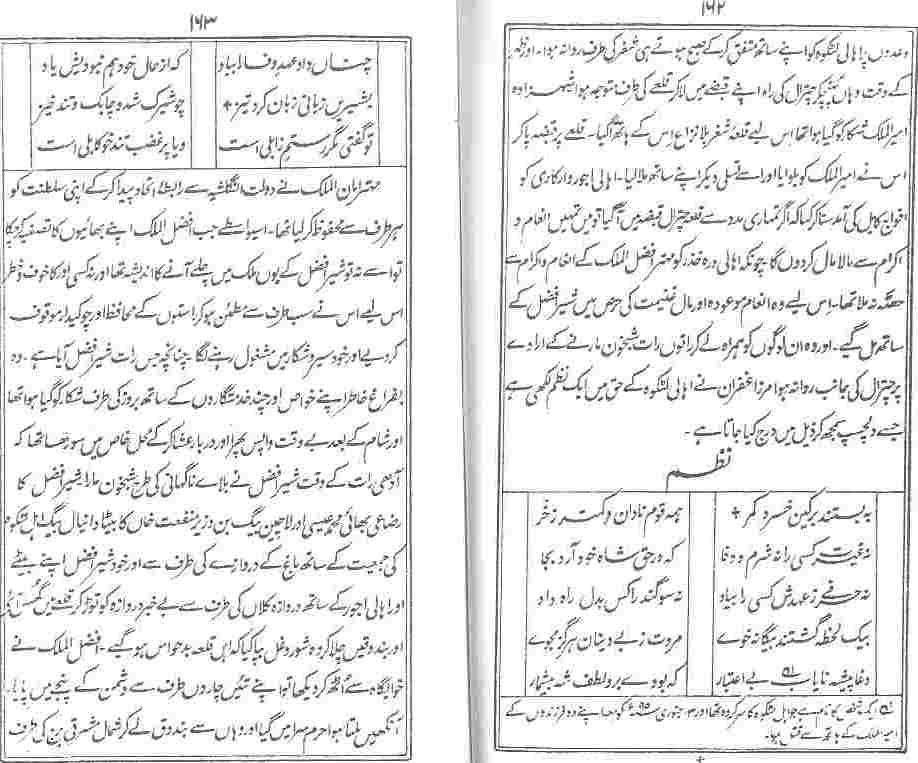 ۱۶۲
وعدوں پر اہالی لٹکوہ کو اپنے ساتھ متفق کرکے صبح ہوتے ہی شغر کی طرف روانہ ہوا۔ اور ظہر
کے وقت وہاں پہنچکر چترال کی راہ اپنے قبضے میں لاکر قلعے کی طرف متوجہ ہوا شہزادہ
امیرالملک شکار کو گیا ہوا تھا اس لیے قلعہ شغر بلا نزاع اس کے ہاتھ آگیا۔ قلعے پر قبضہ پاکر
اس نے امیرالملک کو بلوایا اور اسے تسلی دیکر اپنے ساتھ ملا لیا۔ اہالی اجور وارکاری کو
افواج کابل کی آمد سنا کر کہا کہ اگر تمہاری مدد سے قلعہ چترال قبضہ میں آگیا تو میں تمہیں انعام و
اکرام سے مالا مال کردوں گا چونکہ اہالی درہ خذر کو مہتر افضل الملک کے انعام و اکرام سے
حصہ نہ ملا تھا۔ اس لیے وہ انعام موعودہ اور مال غنیمت کی حرص میں شیر افضل کے
ساتھ مل گیے۔ اور وہ ان لوگوں کو ہمراہ لے کر راتوں رات شبخون مارنے کے ارادے
پر چترال کی جانب روانہ ہوا مرزا غفران نے اہالی لٹکوہ کے حق میں ایک نظم لکھی ہے
جسے دلچسپ سمجھ کر ذیل میں درج کیا جاتا ہے۔
نظم
بہ بستند برکین خسرو کمر + ہمہ قوم نادان و کمتر زخر
نہ غیرت کسی را نہ شرم و وفا کہ در حق شاہ خود آرد بجا
نہ حرفے زعہدش کسی را بیاد نہ سوگند را کس بدل راہ داد
بیک لحظہ گشتند بیگانہ خوے مروت زبے دینان ہرگز مجوے
دغا پیشہ نایاب بے اعتبار کہ بودے برو لطف شہ بیشمار
ایک شخص کا نام ہے جو اہل لٹکوہ کا سرکردہ تھا اور ۳ جنوری ۱۸۹۵ء کو معہ اپنے دو فرزندوں کے
امیرالملک کے ہاتھ سے قتل ہوا۔
۱۶۳
چناں داد عہد وفا لا بباد کہ از حال خود ہم نبودیش یاد
بشیریں زبانی زباں کرد تیز + چو شیرک شدہ چابک و تند خیز
تو گفتی مگر رستم زابلی است ویا پر غضب تندخو کابلی است
مہتر امان الملک نے دولت انگلشیہ سے رابطہ اتحاد پیدا کرکے اپنی سلطنت کو
ہر طرف سے محفوظ کر لیا تھا۔ اسی واسطے جب افضل الملک اپنے بھائیوں کا تصفیہ کر چکا
تو اسے نہ تو شیر افضل کے یوں ملک میں چلے آنے کا اندیشہ تھا اور نہ کسی اور کا خوف و خطر
اس لیے اس نے سب طرف سے مطمئن ہوکر راستوں کے محافظ اور چوکیدار موقوف
کر دیے اور خود سیر و شکار میں مشغول رہنے لگا چنانچہ جس رات شیر افضل آیا ہے۔ وہ
بفراغ خاطر اپنے خواص اور چند خدمتگاروں کے ساتھ بروز کی طرف شکار کو گیا ہوا تھا
اور شام کے بعد بے وقت واپس پھرا اور دربار عشا کرکے محل خاص میں سو رہا تھا کہ
آدھی رات کے وقت شیر افضل نے بلاے ناگہانی کی طرح شبخون مارا شیر افضل کا
رضاعی بھائی محمد عیسی اور لاچین بیگ بن وزیر منفعت خاں کا بیٹا دانیال بیگ اہل لٹکوہ
کی جمعیت کے ساتھ باغ کے دروازے کی طرف سے اور خود شیر افضل اپنے بیٹے
اور اہالی اجور کے ساتھ دروازہ کلاں کی طرف سے بے خبر دروازہ کو توڑ کر قلعے میں گھس آئے
اور بندوقیں چلا کر وہ شور و غل بپا کیا کہ اہل قلعہ بدحواس ہو گیے۔ افضل الملک نے
خوابگاہ سے اٹھ کر دیکھا تو اپنے تئیں چاروں طرف سے دشمن کے پنجے میں پایا۔
آنکھیں ملتا ہوا حرم سرا میں گیا اور وہاں سے بندوق لے کر شمال مشرقی برج کی طرف